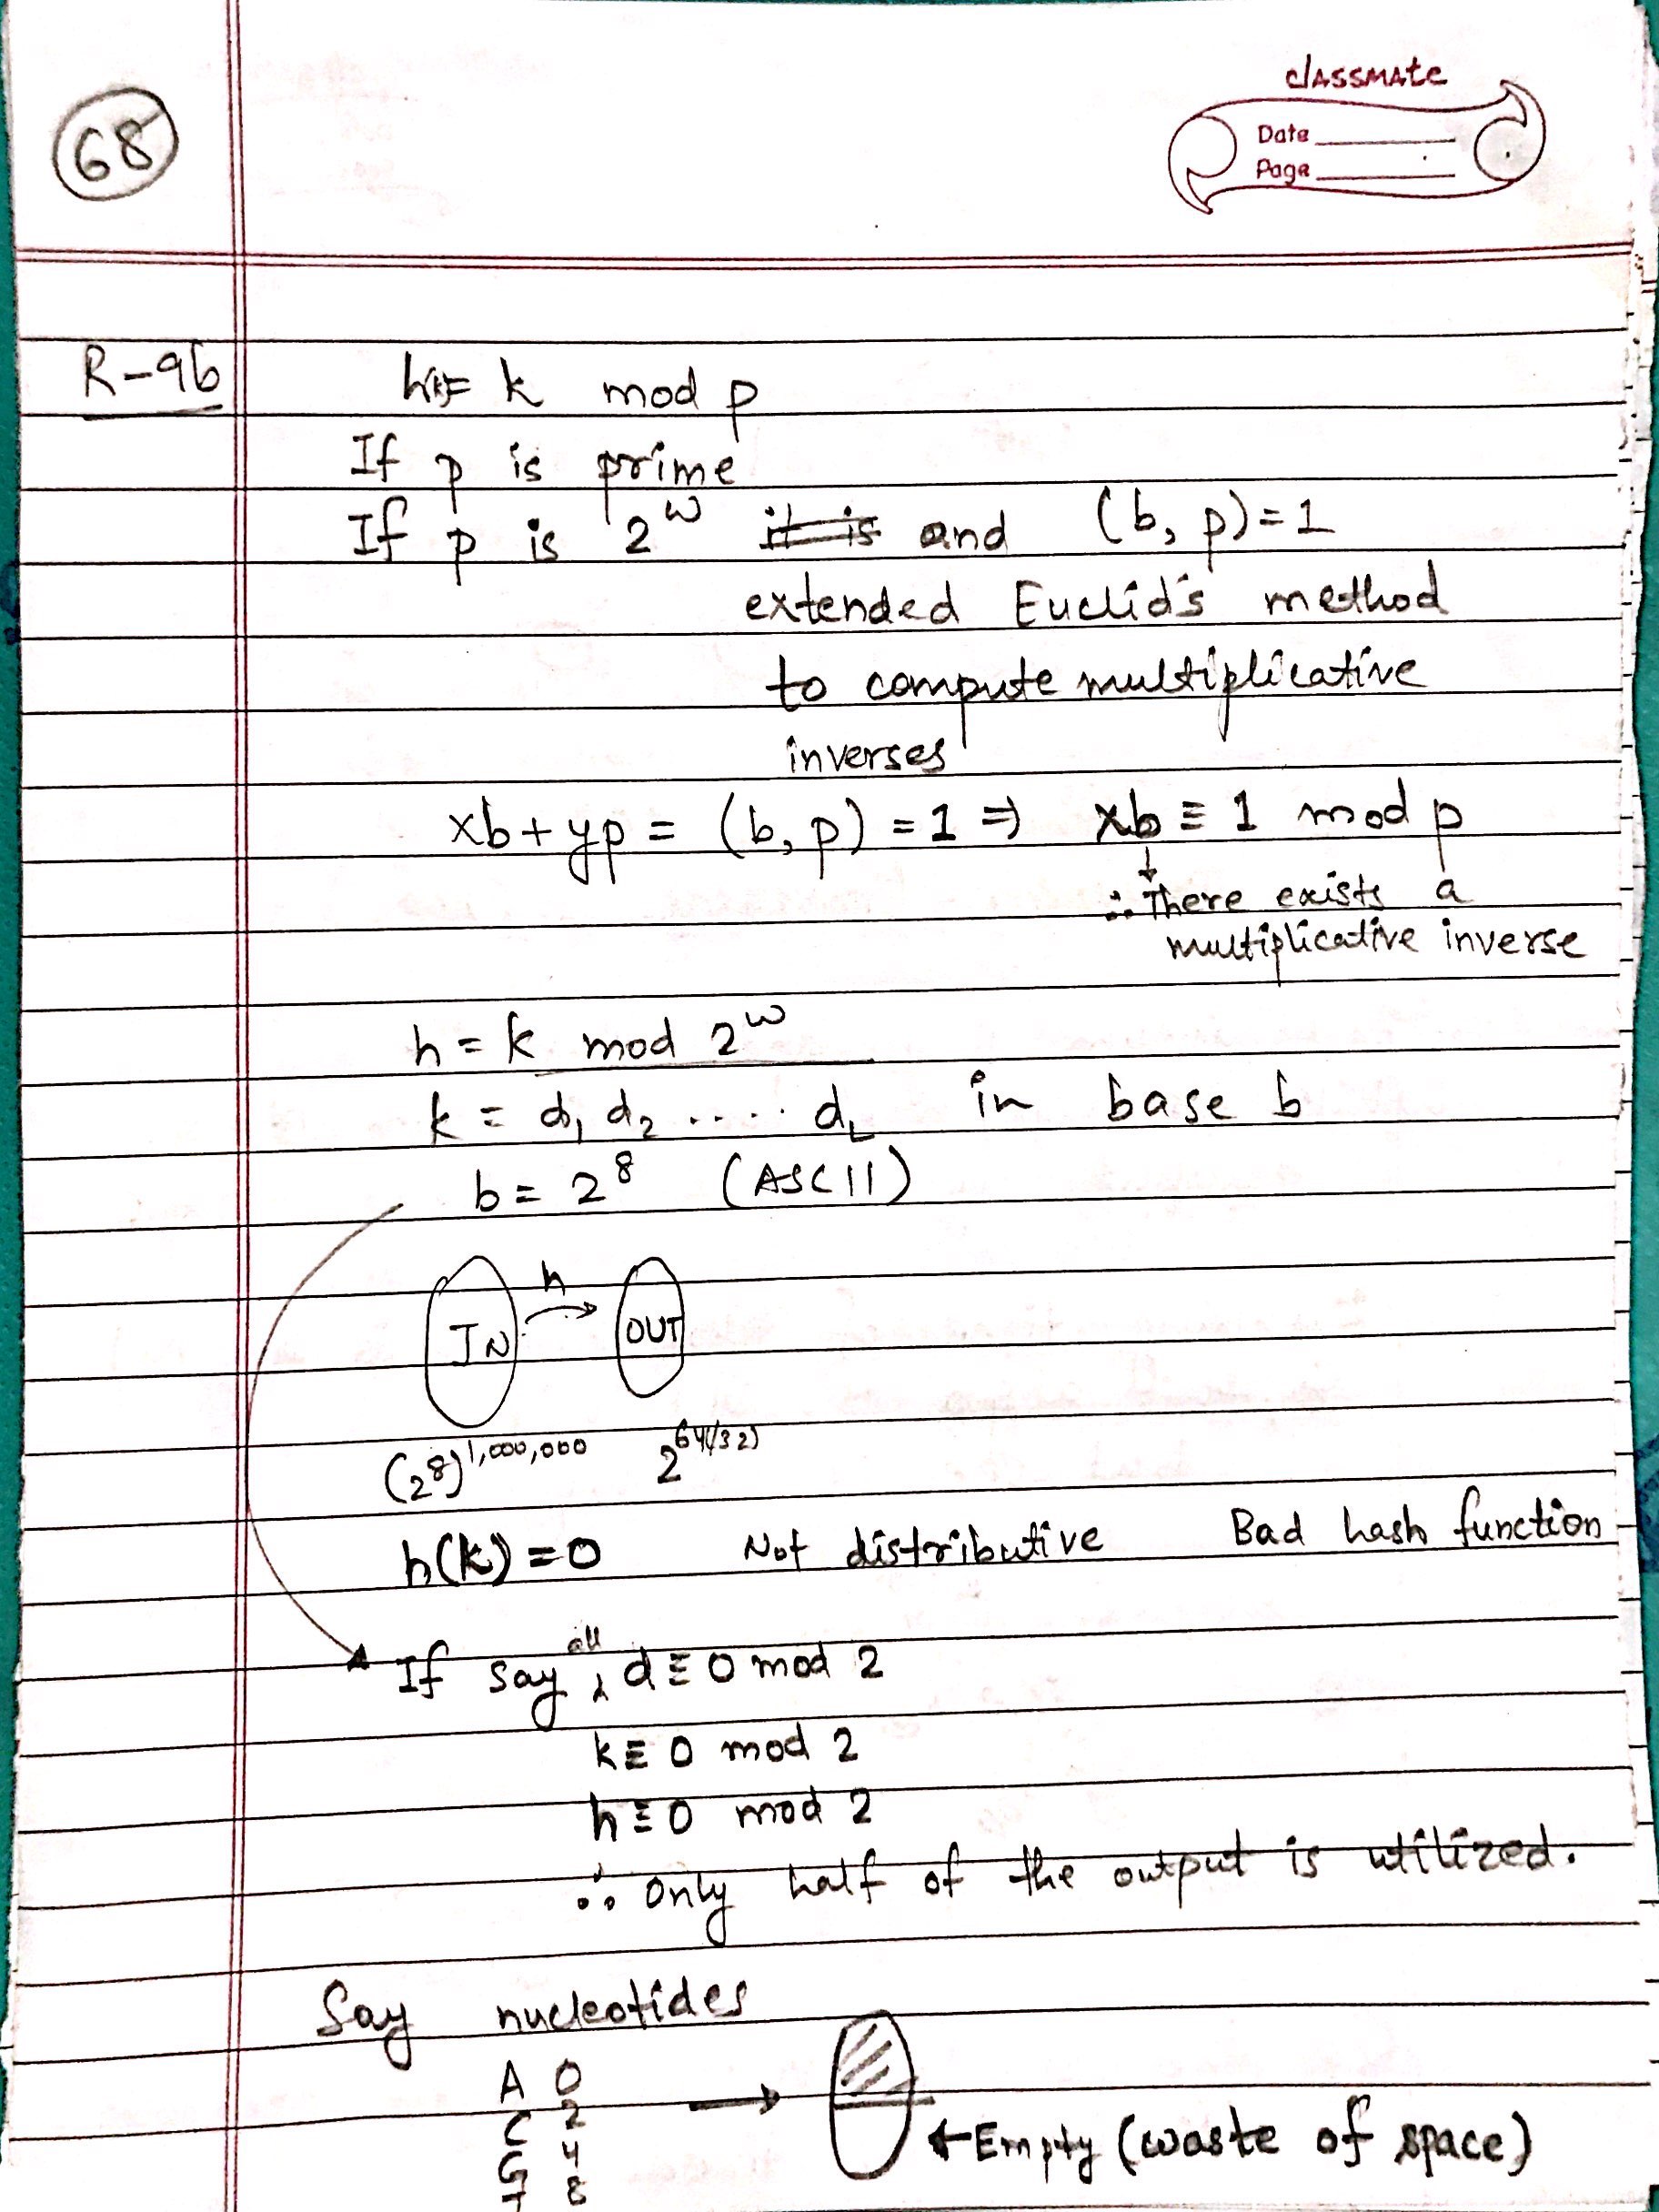 68
classmate
Date
Page
R-9b
h(k)= k mod p
If p is prime
If p is 2^w it is and (b, p)=1
extended Euclid's method
to compute multiplicative
inverses
xb + yp = (b, p) = 1 ⇒ xb ≡ 1 mod p
∴ There exists a
multiplicative inverse
h = k mod 2^w
k = d₁ d₂ .... d_L in base b
b = 2^8 (ASCII)
h
IN OUT
(2^8)^1,000,000 2^64(/32)
h(k) = 0 Not distributive Bad hash function
If say all d ≡ 0 mod 2
k ≡ 0 mod 2
h ≡ 0 mod 2
∴ Only half of the output is utilized.
Say nucleotides
A 0
C 2
G 4
T 8
←Empty (waste of space)